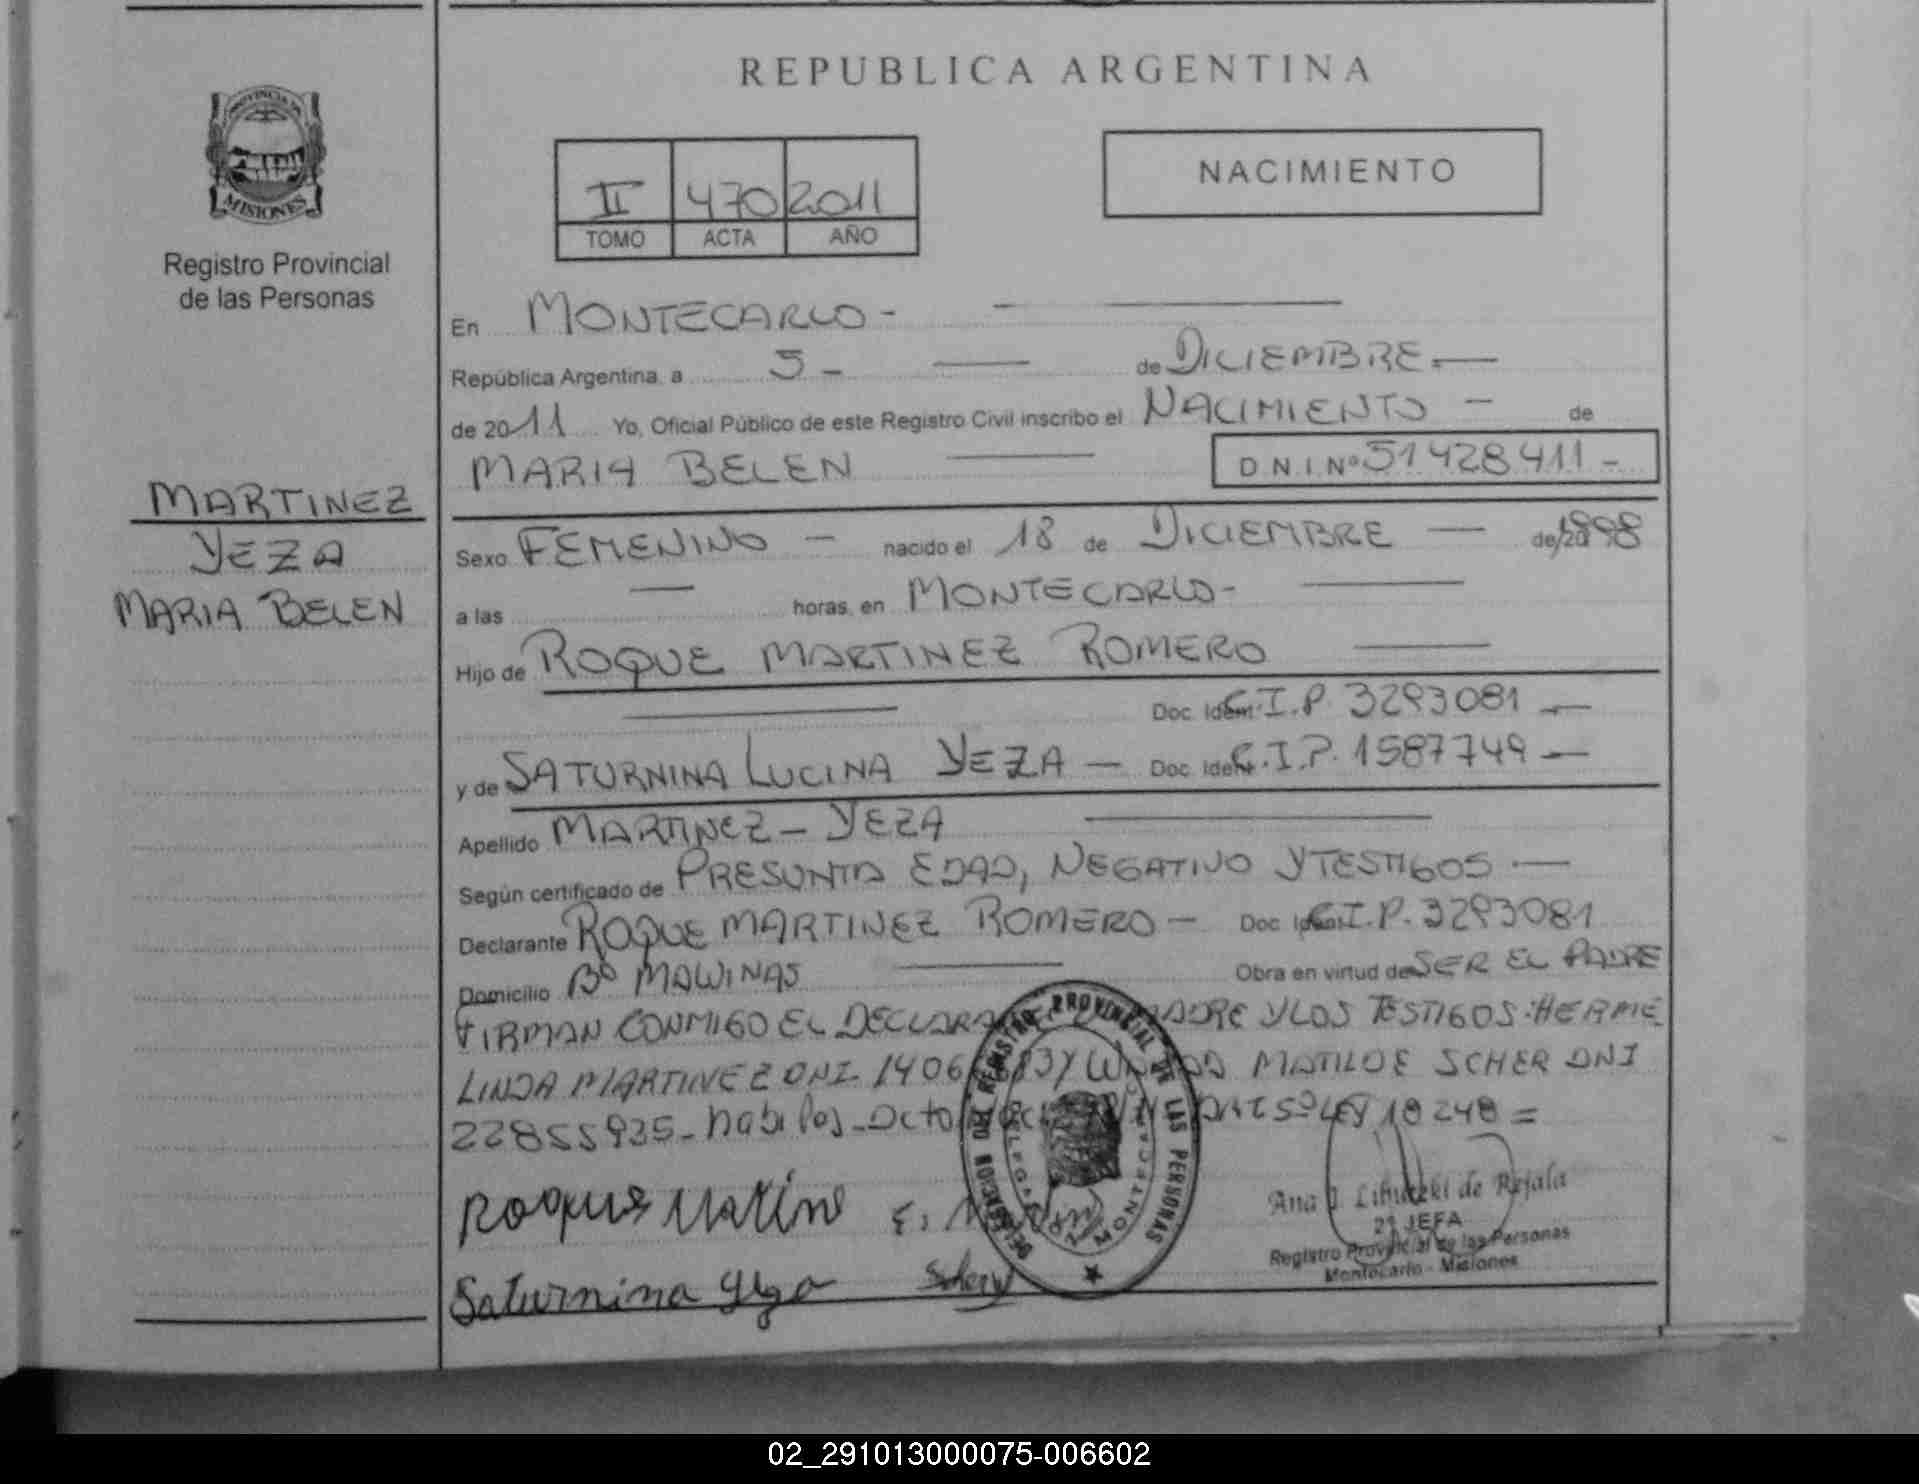 REPUBLICA ARGENTINA
PROVINCIA DE
MISIONES
Registro Provincial
de las Personas
NACIMIENTO
II 470 2011
TOMO ACTA AÑO
En MONTECARLO-
República Argentina, a 5- de DICIEMBRE.
de 2011 Yo, Oficial Público de este Registro Civil inscribo el NACIMIENTO - de
MARIA BELEN D.N.I. Nº 51428411-
MARTINEZ
YEZA
MARIA BELEN
Sexo FEMENINO - nacido el 18 de DICIEMBRE - de/20 1998
a las — horas, en MONTECARLO-
Hijo de ROQUE MARTINEZ ROMERO
Doc. Ident. C.I.P. 3293081
y de SATURNINA LUCINA YEZA - Doc. Ident. C.I.P. 1587749
Apellido MARTINEZ - YEZA
Según certificado de PRESUNTA EDAD, NEGATIVO Y TESTIGOS
Declarante ROQUE MARTINEZ ROMERO - Doc. Ident. C.I.P. 3293081
Domicilio Bº MALVINAS Obra en virtud de SER EL PADRE
FIRMAN CONMIGO EL MADRE Y LOS TESTIGOS: HERME
LINDA MARTINEZ DNI MATILDE SCHER DNI
22855935- habiles- Dcto LEY 18248=
DELEGACION DEL REGISTRO PROVINCIAL DE LAS PERSONAS
Roque Martine
Saturnina Yeza
Ana de Rejala
JEFA
Registro Provincial de las Personas
Montecarlo - Misiones
02_291013000075-006602